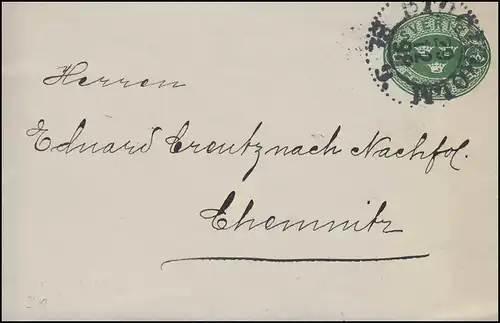 SVERIGE
Herren
Eduard Creutznach Nachfol.
Chemnitz